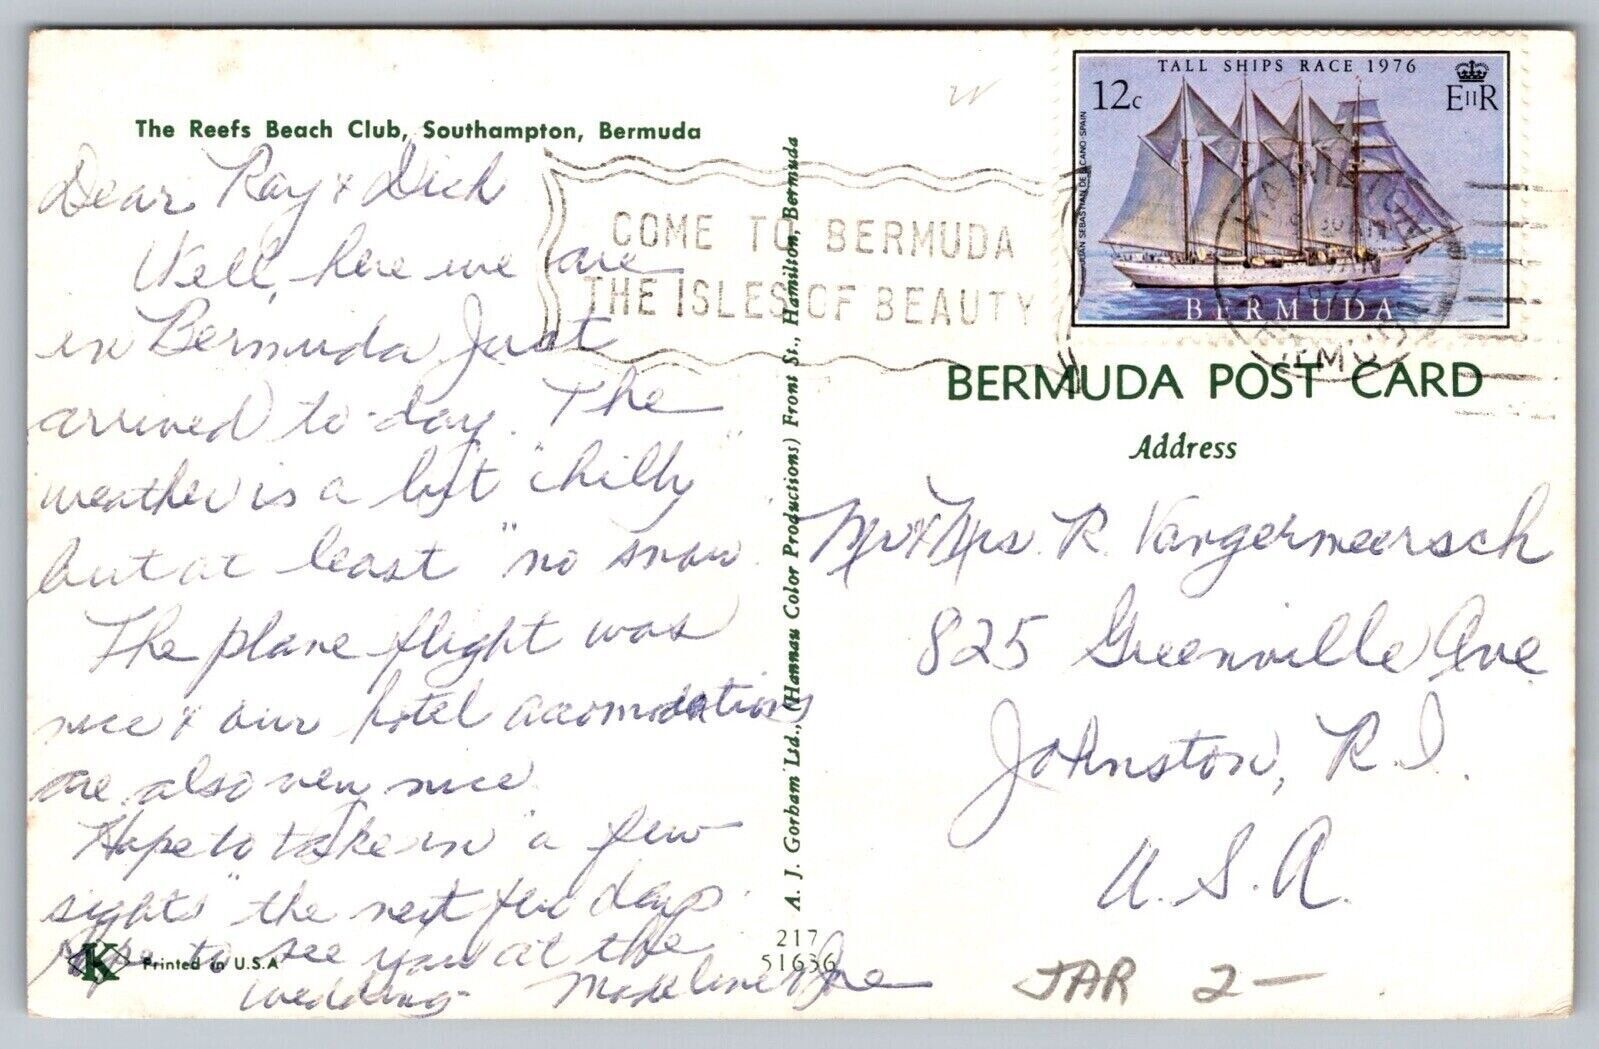 The Reefs Beach Club, Southampton, Bermuda
Dear Ray & Dick
Well, here we are
in Bermuda Just
arrived to-day. The
weather is a bit "chilly"
but at least "no snow"
The plane flight was
nice & our hotel acomodations
are also very nice.
Hope to take in "a few
sights" the next few days.
Hope to see you at the
wedding- Madeline & Joe
K
Printed in U.S.A
A. J. Gorham Ltd., (Hannau Color Productions) Front St., Hamilton, Bermuda
217
51636
COME TO BERMUDA
THE ISLES OF BEAUTY
TALL SHIPS RACE 1976
12c
EIIR
JUAN SEBASTIAN DE ELCANO SPAIN
BERMUDA
HAMILTON
BERMUDA
BERMUDA POST CARD
Address
Mr & Mrs. R. Vangermeersch
825 Greenville Ave
Johnston, R.I.
U.S.A.
JAR 2-